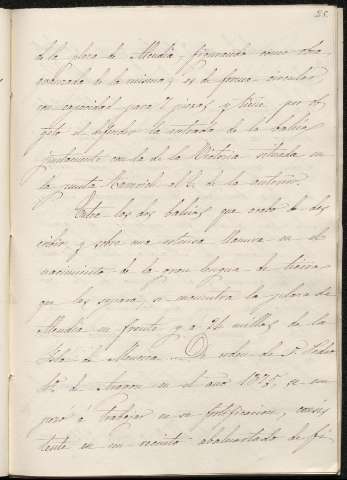 25.
de la plaza de Alcudia formando como obra
avanzada de la misma, es de forma circular
con capacidad para 5 piezas y tiene por ob
jeto el defender la entrada de la bahía
juntamente con la de la Victoria situada en
la punta al E. de la anterior.
Entre las dos bahías que acabo de des
cribir, y sobre una estensa llanura en el
nacimiento de la gran lengua de tierra
que las separa, se encuentra la plaza de
Alcudia en frente y a 34 millas de la
Isla de Menorca. De orden de D. Pedro
4º de Aragon en el año 1375, se em
pezó á trabajar en su fortificacion, consis
tente en un recinto abaluartado de fi